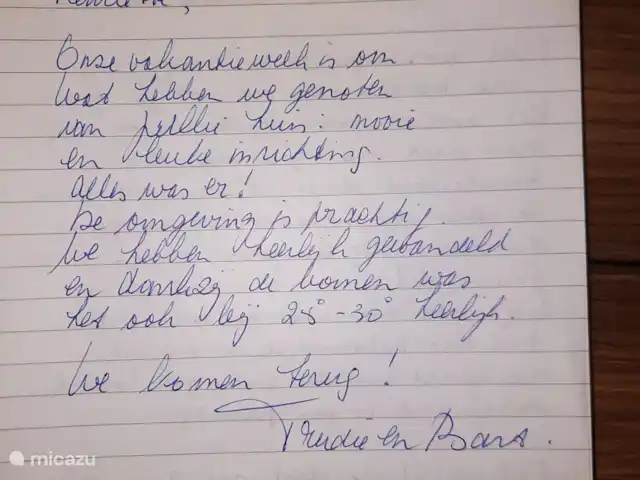 Onze vakantieweek is om.
Wat hebben we genoten
van jullie huis: mooie
en leuke inrichting.
Alles was er!
De omgeving is prachtig.
We hebben heerlijk gewandeld
en dankzij de bomen was
het ook bij 25° - 30° heerlijk.
We komen terug!
Trudie en Bart.
micazu